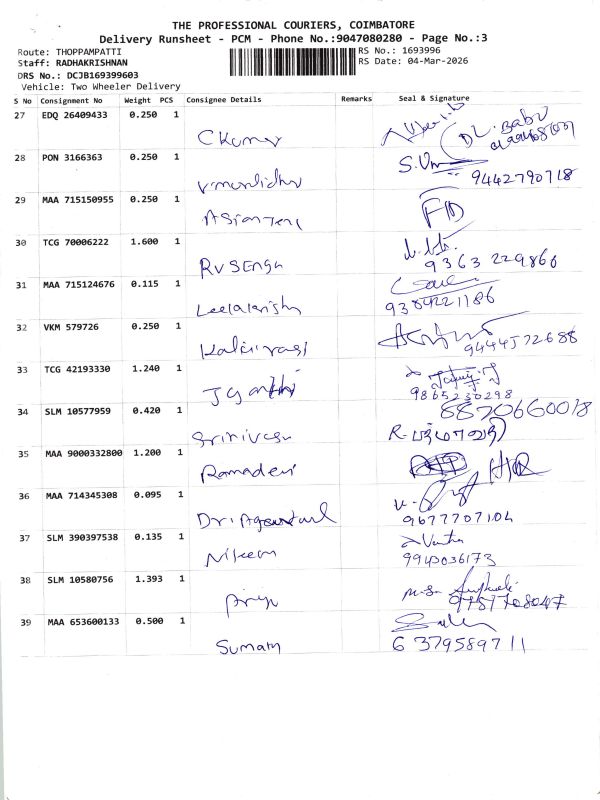 THE PROFESSIONAL COURIERS, COIMBATORE
Delivery Runsheet - PCM - Phone No.:9047080280 - Page No.:3
Route: THOPPAMPATTI
RS No.: 1693996
Staff: RADHAKRISHNAN
RS Date: 04-Mar-2026
DRS No.: DCJB169399603
Vehicle: Two Wheeler Delivery
S No Consignment No Weight PCS Consignee Details Remarks Seal & Signature
27 EDQ 26409433 0.250 1
C Kumar
Babu
28 PON 3166363 0.250 1
V. muralidhar
9442790718
29 MAA 715150955 0.250 1
30 TCG 70006222 1.600 1
9363 229860
31 MAA 715124676 0.115 1
9384221186
32 VKM 579726 0.250 1
9444572688
33 TCG 42193330 1.240 1
9865230298
34 SLM 10577959 0.420 1
8870660018
Srinivasan
R. பத்மாவதி
35 MAA 9000332800 1.200 1
Ramadevi
36 MAA 714345308 0.095 1
9677707104
37 SLM 390397538 0.135 1
9943036173
38 SLM 10580756 1.393 1
Priya
39 MAA 653600133 0.500 1
Sumathy
6379589711